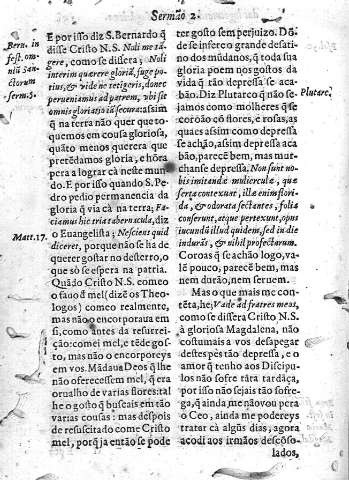 Sermaõ 2.
E por isso diz S. Bernardo q̃
disse Cristo N.S. Noli me tã
gere, como se dissera; Noli
interim quærere gloriã, fuge po
tius, & vide ne tetigeris, donec
perueniamus ad patrem, vbi sit
omnis gloriatio nostra secura: assim
q̃ na terra não quer que to-
quemos em cousa gloriosa,
quãto menos querera que
pretẽdamos gloria, e hõra
pera a lograr cà neste mun
do. E por isso quando S. Pe
dro pedio permanencia da
gloria q̃ via cà na terra; Fa
ciamus hic tria tabernacula, diz
o Euangelista; Nesciens quid
diceret, porque não se ha de
querer gostar no desterro, o
que sò se espera na patria.
Quãdo Cristo N.S. comeo
o fauo d̃ mel (dizẽ os Theo
logos) comeo realmente,
mas não o encorporaua em
si, como antes da resurrei-
ção: comei mel, e tẽde gos-
to, mas não o encorporeys
em vos. Mãdaua Deos q̃ lhe
não oferecessem mel, q̃ era
orualho de varias flores: tal
he o gosto q̃ buscais em tão
varias cousas: mas despois
de resuscitado come Cristo
mel, porq̃ ja então se pode
Bern. in
fest. om-
niũ San-
ctorum
serm. 5.
Matt. 17.
ter gosto sem perjuizo. Dõ-
de se infere o grande desati-
no dos mũdanos, q̃ toda sua
gloria poem nos gostos da
vida q̃ tão depressa se aca-
bão. Diz Plutarco q̃ não se-
jamos como molheres q̃ se
coroão cõ flores, e rosas, as
quaes assim como depressa
se achão, assim depressa aca
bão, parecẽ bem, mas mur-
chanse depressa. Non sunt no-
bis imitandæ mulierculæ, quæ
serta contexunt, illæ enim flori-
da, & odorata sectantes, folia
conserunt, atque pertexunt, opus
iucundũ illud quidem, sed in die
indurãs, & nihil profecturam.
Coroas q̃ se achão logo, va-
lẽ pouco, parecẽ bem, mas
nem durão, nem seruem.
Mas o que mais me con-
tẽta, he; Vade ad fratres meos,
como se dissera Cristo N.S.
à gloriosa Magdalena, não
costumais a vos desapegar
destes pès tão depressa, e o
amor q̃ tenho aos Discipu-
los não sofre tãta tardãça,
por isso não sejais tão sofre-
ga, q̃ ainda me não vou pera
o Ceo, ainda me podereys
tratar cà algũs dias, agora
acodi aos irmãos descõso-
lados,
Plutarc.